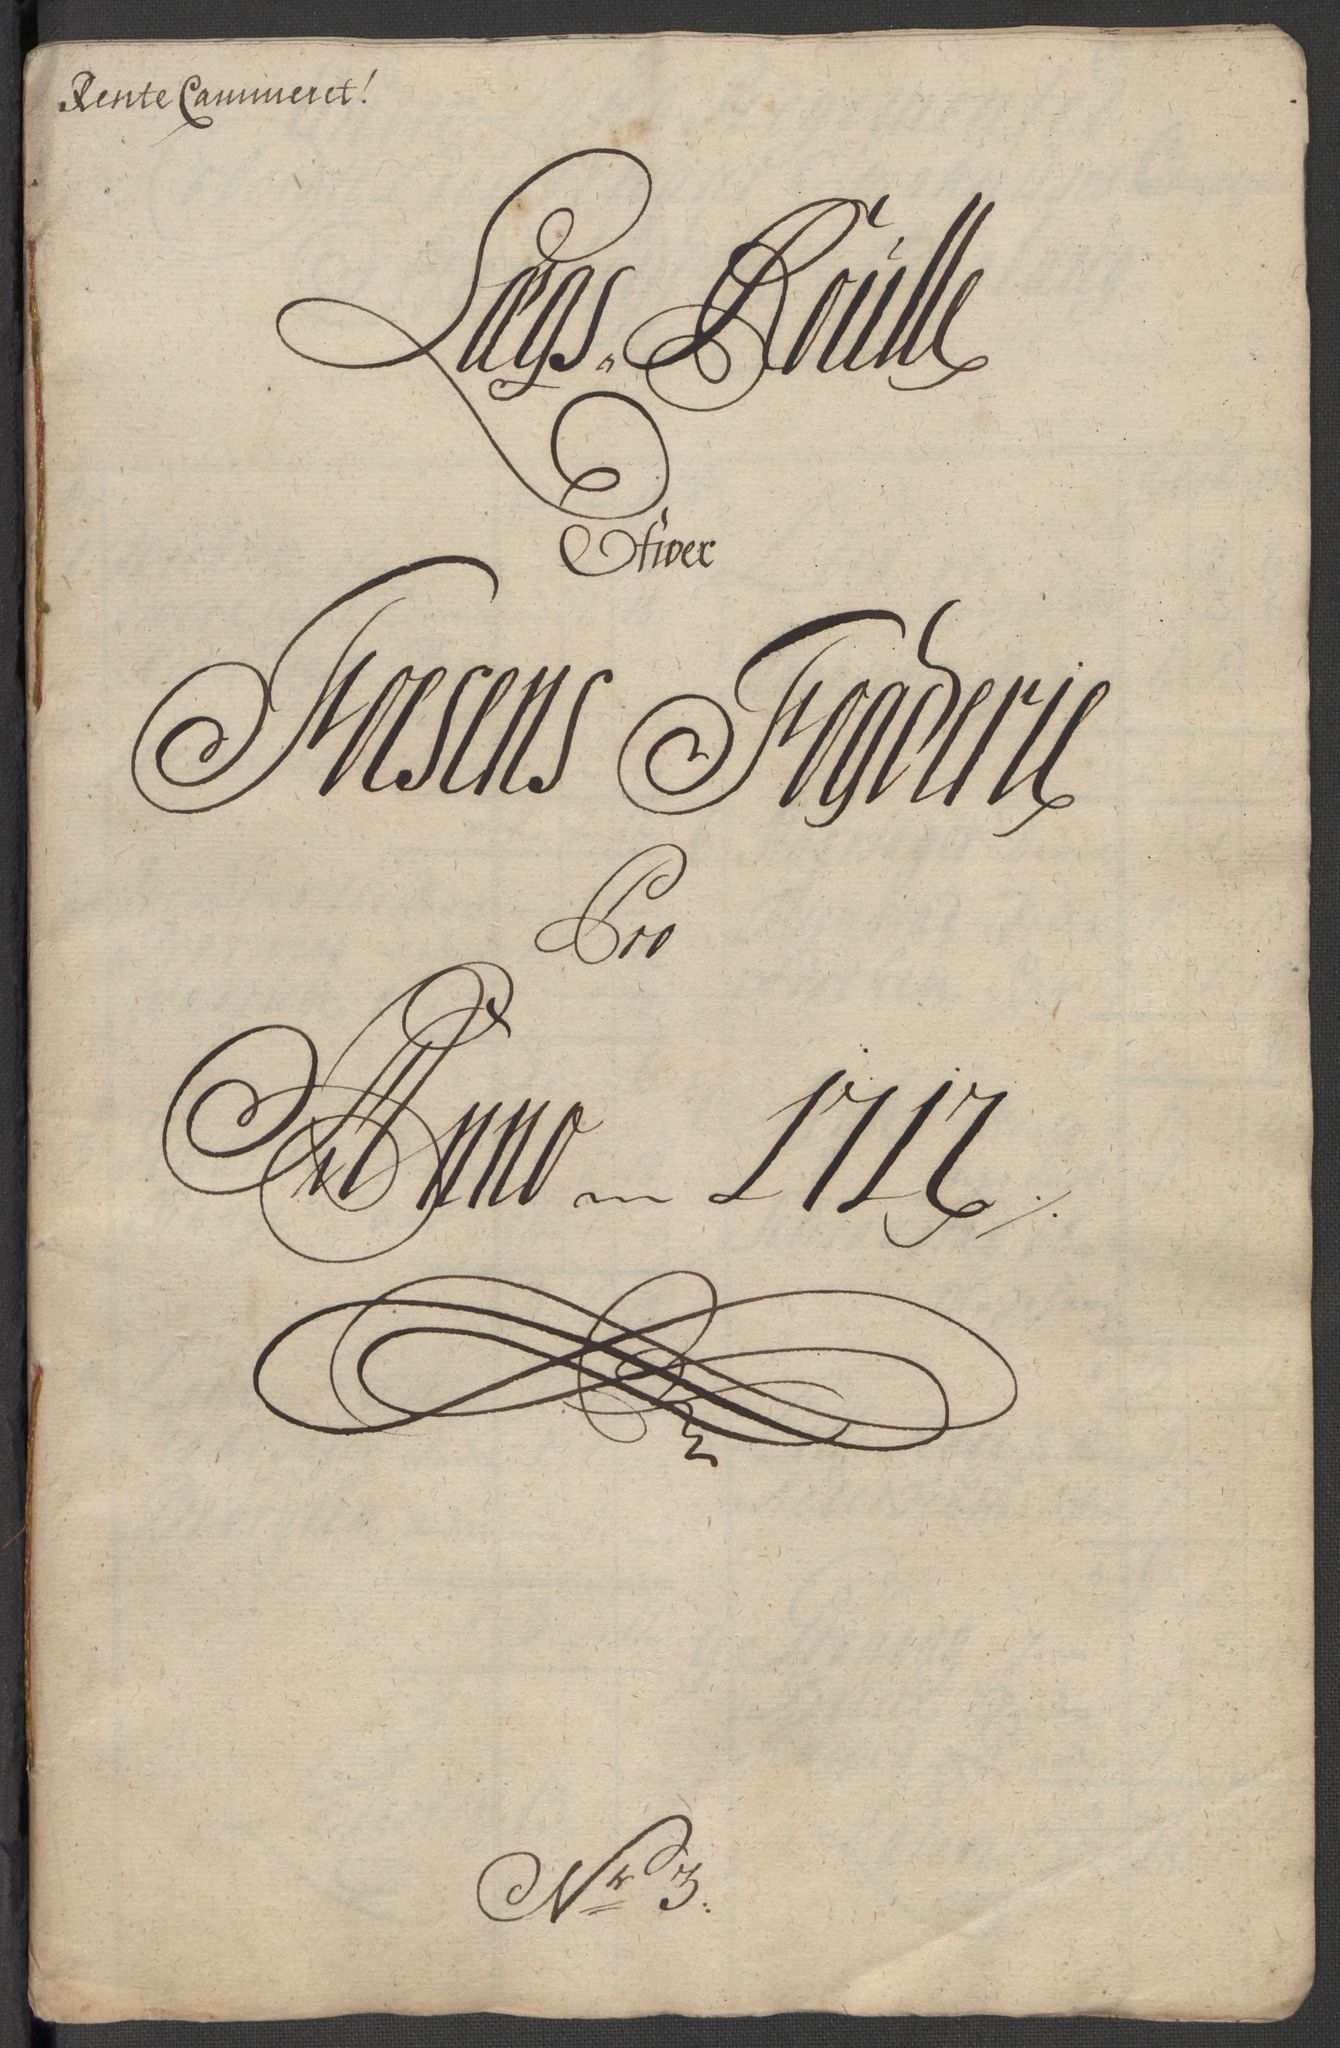 Rente Cammeret!
Lægs. Roulle
Ofwer
Foesens Fogderie
Pro
Anno 1717
Nr 3.